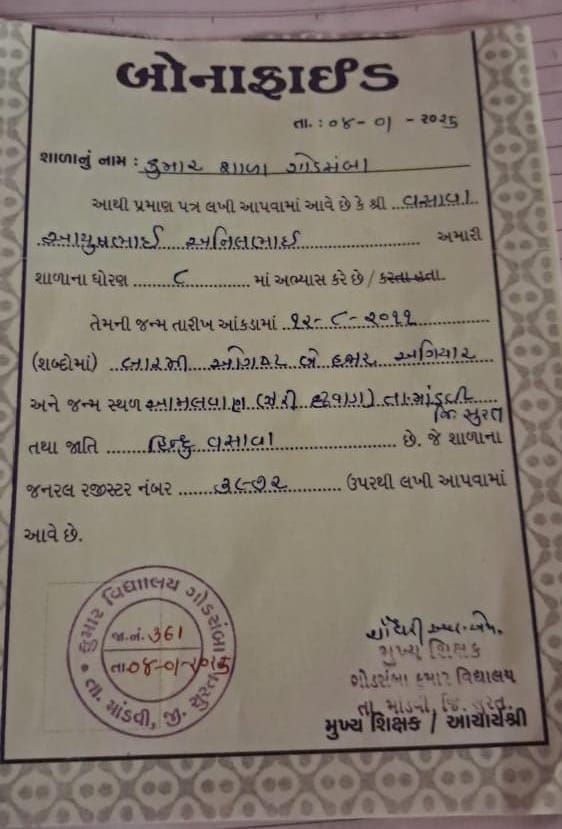 બોનાફાઈડ
તા. : ૦૪-૦૧-૨૦૨૫
શાળાનું નામ : કુમાર શાળા ગોડસંબા
આથી પ્રમાણ પત્ર લખી આપવામાં આવે છે કે શ્રી વસાવા
આયુષભાઈ અનિલભાઈ અમારી
શાળાના ધોરણ ૮ માં અભ્યાસ કરે છે / કરતા હતા.
તેમની જન્મ તારીખ આંકડામાં ૧૨-૮-૨૦૧૧
(શબ્દોમાં) બારમી ઓગષ્ટ બે હજાર અગિયાર
અને જન્મ સ્થળ આમલવાણ તા. માંડવી
જિ સુરત
તથા જાતિ હિન્દુ વસાવા છે. જે શાળાના
જનરલ રજીસ્ટર નંબર ૩૯૭૨ ઉપરથી લખી આપવામાં
આવે છે.
કુમાર વિદ્યાલય ગોડસંબા
જા.નં. 361
તા ૦૪-૦૧-૨૦૨૫
તા. માંડવી, જી. સુરત
ચૌધરી
મુખ્ય શિક્ષક
ગોડસંબા કુમાર વિદ્યાલય
તા. માંડવી, જિ. સુરત.
મુખ્ય શિક્ષક / આચાર્યશ્રી